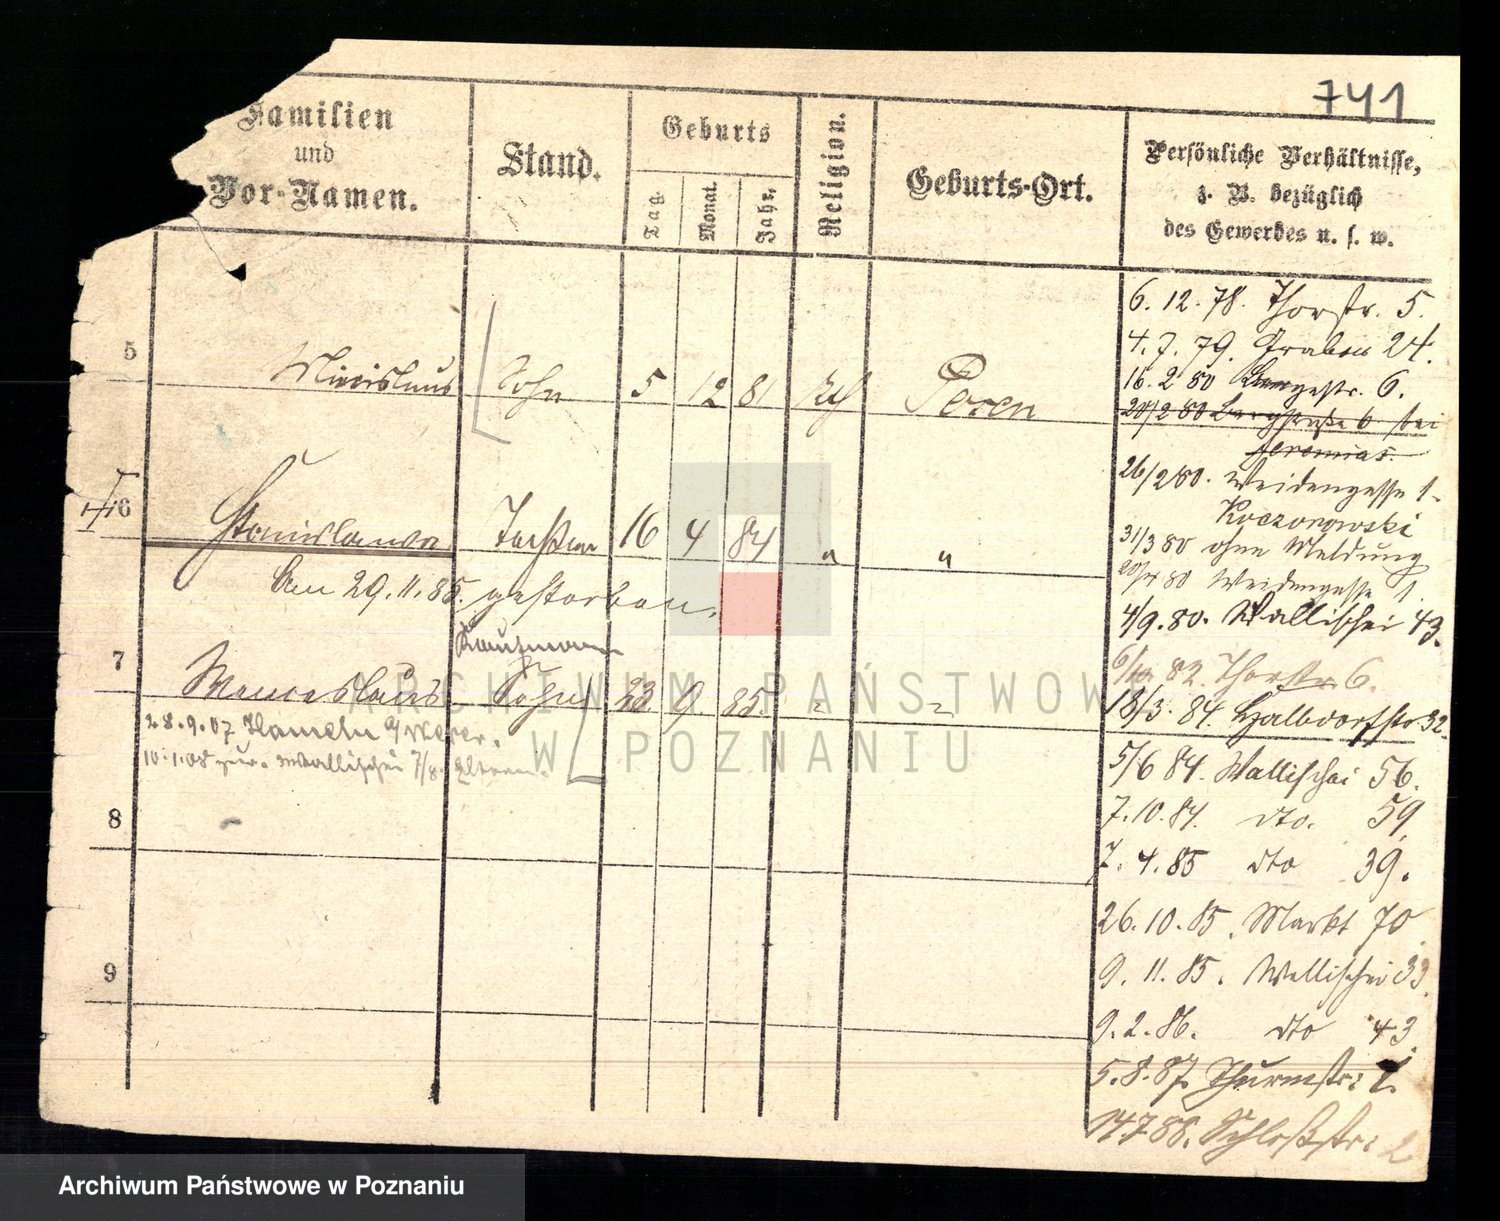 741
Familien
und
Vor-Namen.
Stand.
Geburts
Tag.
Monat.
Jahr.
Religion.
Geburts-Ort.
Persönliche Verhältnisse,
z. B. bezüglich
des Gewerbes u. s. w.
5 Miecislaus Sohn 5 12 81 kth Posen
6 Stanislawa Tochter 16 4 84 " "
Am 29.11.85. gestorben.
Kaufmann
7 Wenceslaus Sohn 23 9 85. " "
28.9.07 Hameln a/Weser.
10.1.08 zur. Wallischei 7/8. Eltern.
8
9
6. 12. 78. Thorstr. 5.
4. 7. 79. Graben 24.
16. 2 80 Bergstr. 6.
20/2 80 Bergstraße 6 bei
Jeremias.
26/2 80. Weidengasse 1.
Koczorowski
31/3 80 ohne Meldung
20/4 80 Weidengasse 1.
4/9. 80. Wallischei 43.
82. Thorstr. 6.
18/3. 84. Halbdorfstr 32.
5/6 84. Wallischei 56.
7. 10. 84. dto. 59.
7. 4. 85 dto 39.
26. 10. 85. Markt 70
9. 11. 85. Wallischei 33.
9. 2. 86. dto 43.
5. 8. 87. Thurmstr: 1.
14 7 88. Schloßstr: 2
ARCHIWUM PAŃSTWOWE
W POZNANIU
Archiwum Państwowe w Poznaniu